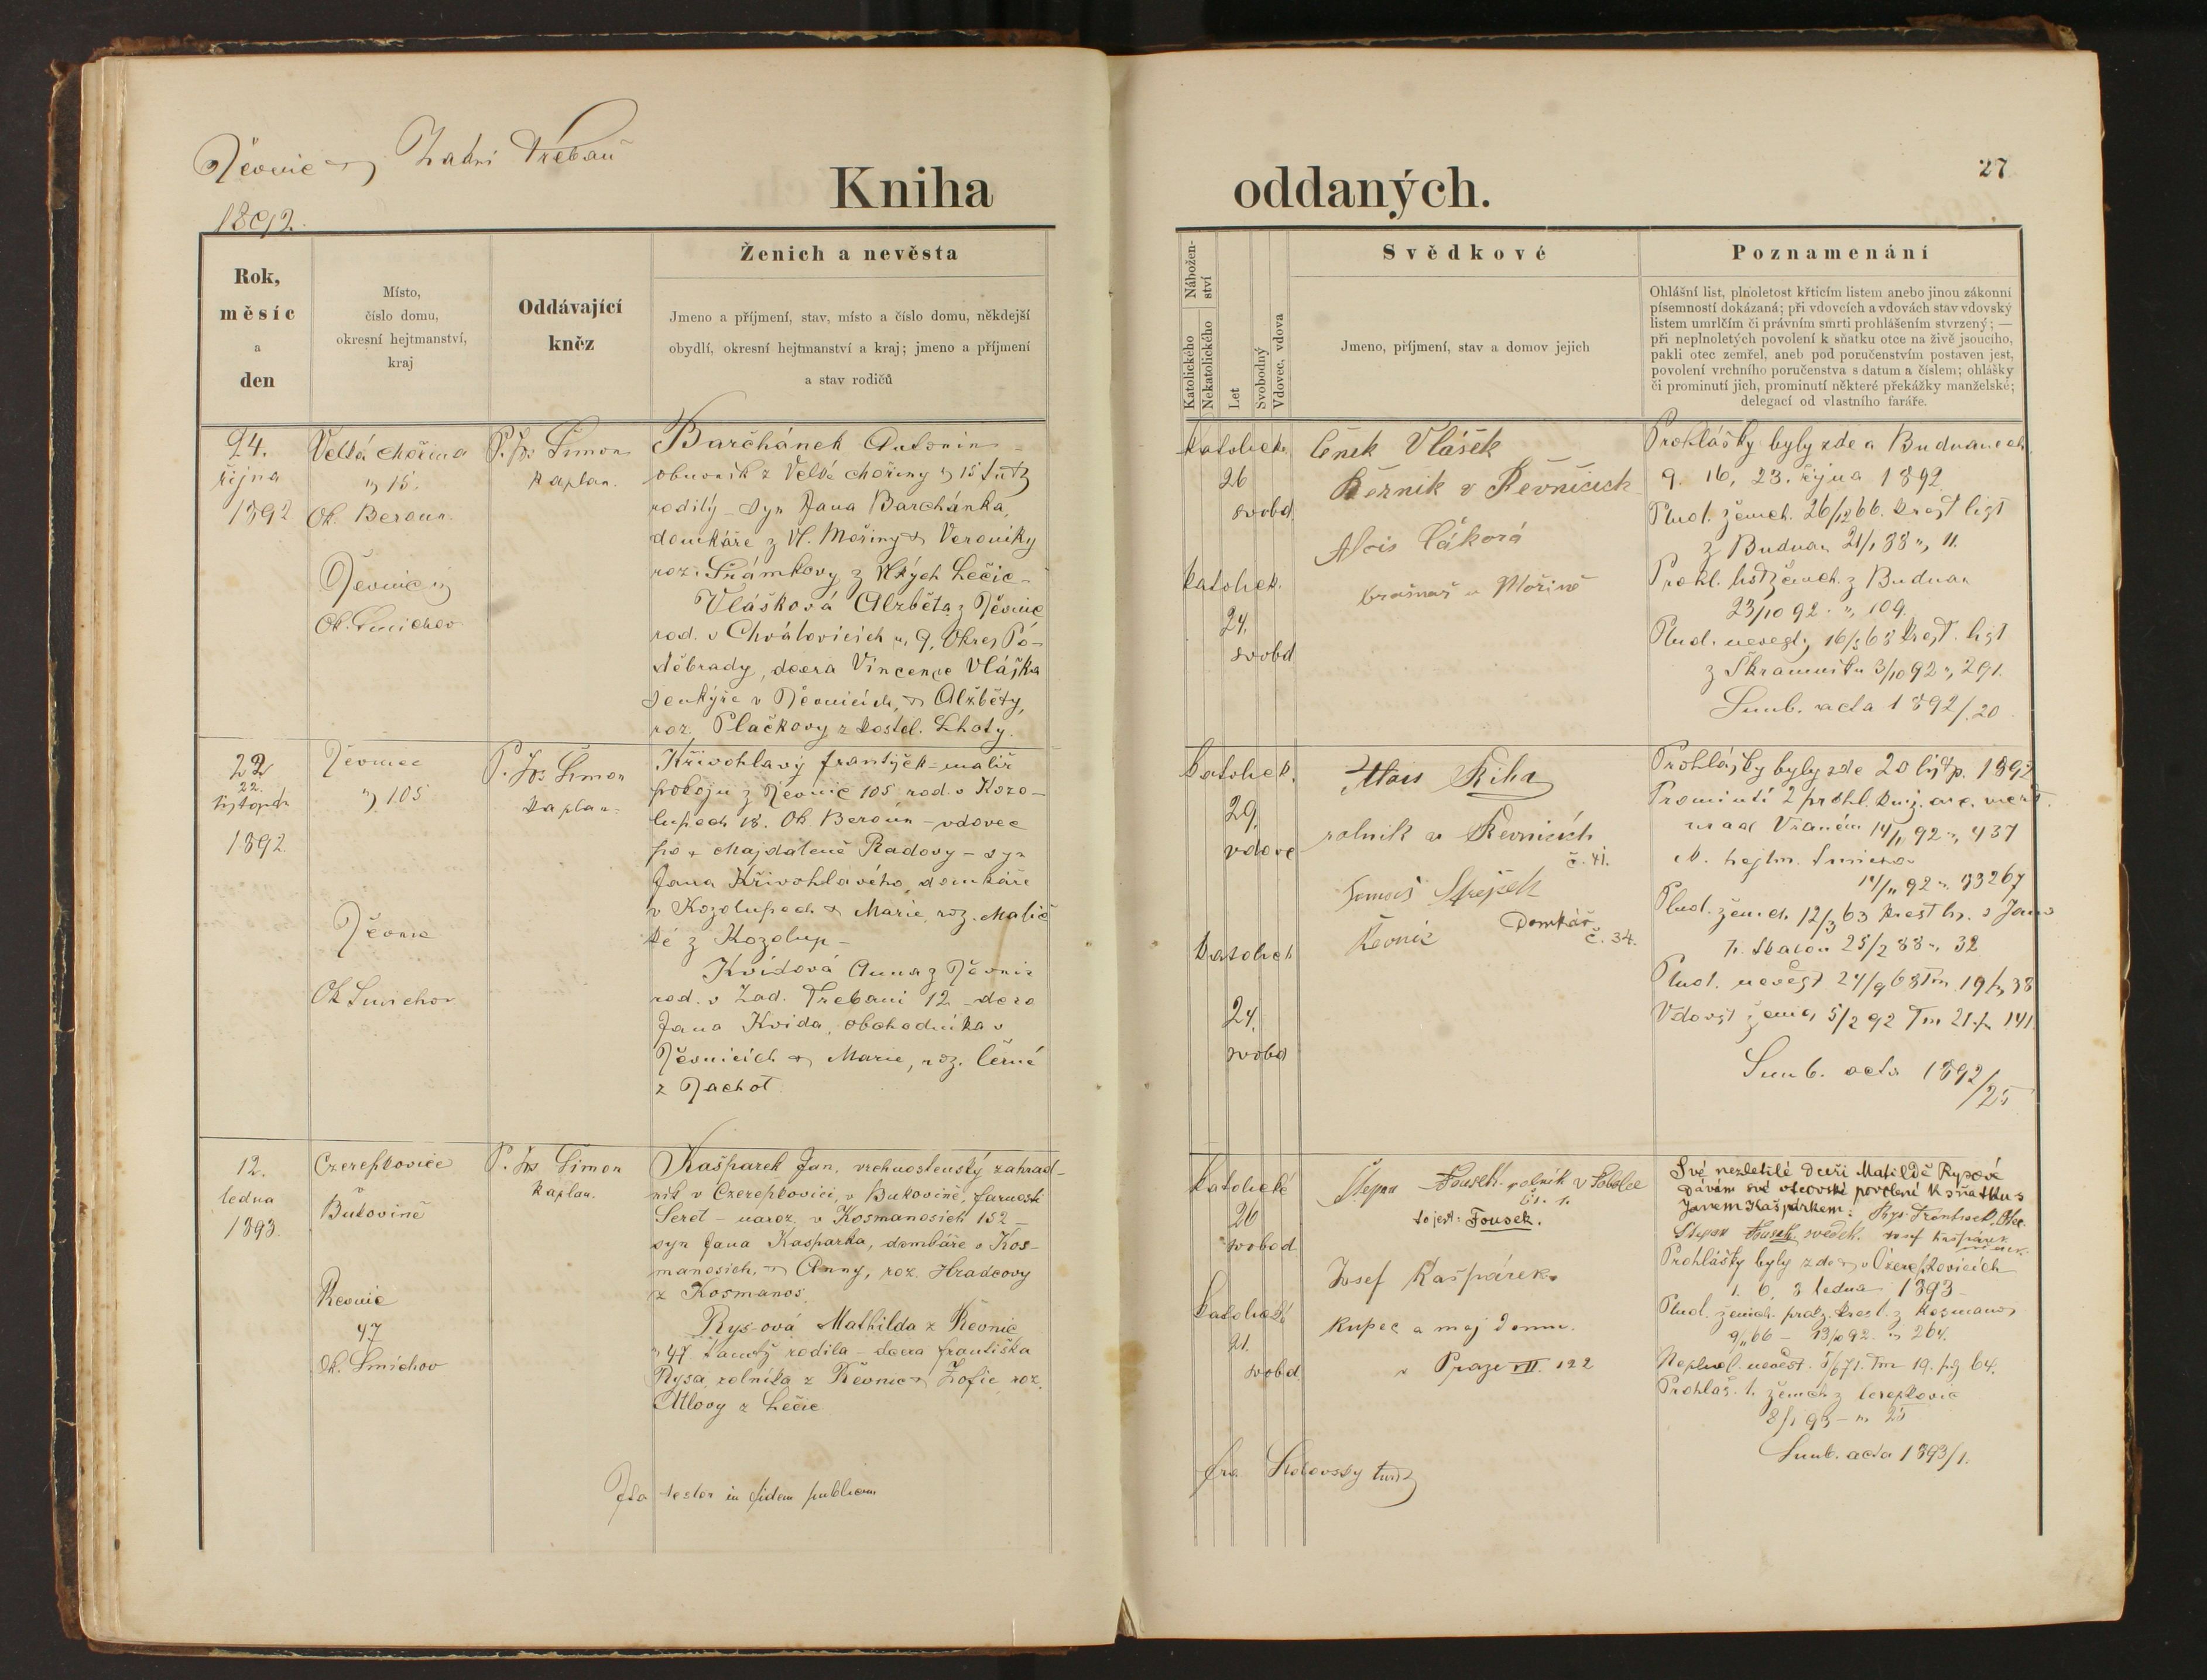 Řevnic & Zadní Třebaň
1892.
Kniha oddaných.
27
Rok,
měsíc
a
den
Místo,
číslo domu,
okresní hejtmanství,
kraj
Oddávající
kněz
Ženich a nevěsta
Jmeno a příjmení, stav, místo a číslo domu, někdejší
obydlí, okresní hejtmanství a kraj; jmeno a příjmení
a stav rodičů
Nábožen-
ství
Katolického
Nekatolického
Let
Svobodný
Vdovec, vdova
Svědkové
Jmeno, příjmení, stav a domov jejich
Poznamenání
Ohlášní list, plnoletost křticím listem anebo jinou zákonní
písemností dokázaná; při vdovcích a vdovách stav vdovský
listem umrlčím či právním smrti prohlášením stvrzený; —
při neplnoletých povolení k sňatku otce na živě jsoucího,
pakli otec zemřel, aneb pod poručenstvím postaven jest,
povolení vrchního poručenstva s datum a číslem; ohlášky
či prominutí jich, prominutí některé překážky manželské;
delegací od vlastního faráře.
24.
října
1892
Velká Mořina
15.
Ok. Beroun.
Řevnice
Ok. Smichov
P. Jos Šimon
kaplan.
Barchánek Antonin
obuvník z Velké Mořiny 15 tutž
rodilý - syn Jana Barchánka,
domkáře z Vl. Mořiny & Veroniky
roz. Šrámkovy z Vlkých Lečic -
Vlášková Alžběta z Řevnic
rod. v Chvalovicích 9, Okres Po-
děbrady, dcera Vincence Vláška
šenkýře v Řevnicích, & Alžběty,
roz. Plačkovy z Kostel. Lhoty.
katolick.
26
svobd.
katolick.
24.
svobd
Čeněk Vlášek
Řezník v Řevnicích
Alois
v Mořině
Prohlášky byly zde a Budnanech
9. 16, 23. října 1892
Plnol. ženich. 26/12 66. křest list
z Budnan 21/1 88 11.
Prohl. list ženich. z Budnan
23/10 92. 109.
Plnol. nevesty 16/ 68 křest. list
z Skramníku 3/10 92 291.
Snub. acta 1892/20
22
22.
listopadu
1892.
Řevnice
105
Řevnic
Ok Smichov
P. Jos Šimon
kaplan.
Křivohlavý František - malíř
pokojů z Řevnic 105 rod. v Kozo-
lupech 18. Ok Beroun - vdovec
po Majdaleně Radovy - syn
Jana Křivohlavého, domkáře
v Kozolupech & Marie, roz. Malic-
ké z Kozolup -
Kvídová Anna z Řevnic
rod. v Zad. Třebani 12 - dcera
Jana Kvida, obchodníka v
Řevnicích & Marie, roz. Černé
z Rachot
katolick.
29.
vdovec
katolick
24.
svobd
Alois Říha
rolník v Řevnicích
č. 41.
Domkář
Řevnic č. 34.
Prohlášky byly zde 20 listp. 1892
Prominutí 2 prohl.
Vraném 14/11 92 437
hejtm. Smichov
14/11 92 33267
Plnol. ženich 12/3 63 křest
25/2 88 32
Plnol. nevěst 24/9 68 Tm 19 38
Vdovst ženich 5/2 92 Tm 21 141
Snub. acta 1892/25
12.
ledna
1893.
Czerepkovice
Bukovině
Řevnic
47
Ok. Smichov
P. Jos Šimon
Kaplan.
Kašparek Jan, vrchnostenský zahrad-
ník v Czerepkovici, v Bukovině, farnosti
Seret - naroz. v Kosmanosích 152 -
syn Jana Kašparka, domkáře v Kos-
manosich, & Anny, roz. Hradcovy
z Kosmanos.
Rys-ová Mathilda z Řevnic
47 tamtéž rodilá - dcera Františka
Rysa, rolníka z Řevnic & Žofie, roz.
z Lečic
katolické
26
svobod
katolické
21.
svobd
Štěpán Fousek. rolník v
čís. 1.
to jest: Fousek.
Josef Kašpárek
kupec a maj domu.
v Praze VII. 122
Své nezletilé dceři Matildě Rysové
dávám své otcovské povolení k sňatku s
Janem Kašpárkem: Rys František, Otec.
Štěpán Fousek svědek. Josef Kašpárek
svědek.
Prohlášky byly zde & v Czerepkovicích
1. 6. 8 ledna 1893
Plnol. ženich. křest. z Kosmanos
9/11 66 - 13/12 92. 264.
Neplnol. nevěst. 5/ 71. Tm 19. pg 64.
Prohláš. l. ženich z Cerepkovic
8/1 93 - 25
Snub. acta 1893/1.
Ita testor in fidem publicam